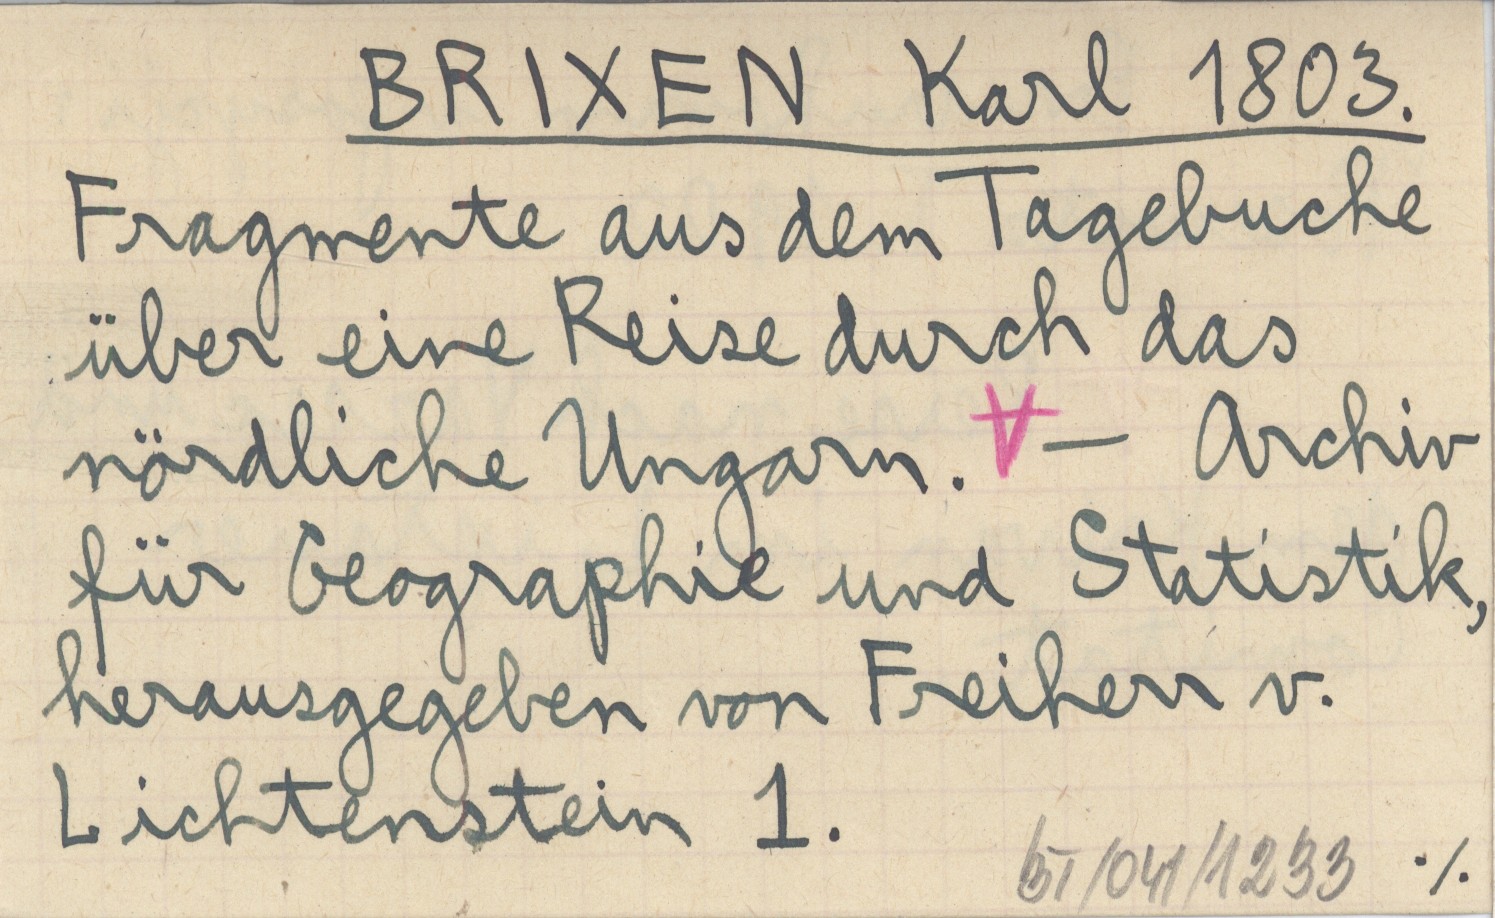 BRIXEN Karl 1803.
Fragmente aus dem Tagebuche
über eine Reise durch das
nördliche Ungarn. ∀ — Archiv
für Geographie und Statistik,
herausgegeben von Freiherr v.
Lichtenstein 1.
/041/1233 ·/.